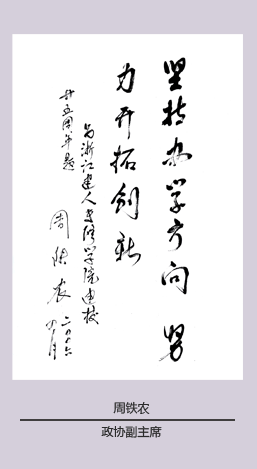 坚持办学方向 努
力开拓创新
为浙江建人专修学院建校
廿五周年题
周铁农 二〇〇六
四月
周铁农
政协副主席